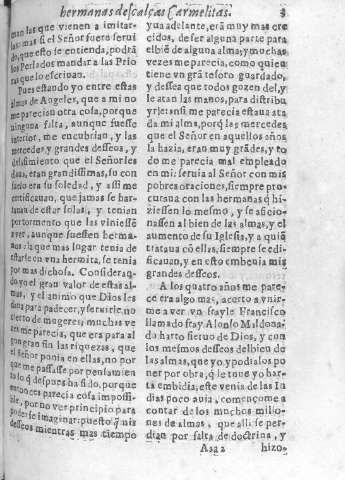 hermanas descalças Carmelitas. 3
man las que vienen a imitar-
las: mas si el Señor fuere serui
do, que esto se entienda, podrà
los Perlados mandar a las Prio
ras que lo escriuan.
Pues estando yo entre estas
almas de Angeles, que a mi no
me parecian otra cosa, porque
ninguna falta, aunque fuesse
interior, me encubrian, y las
mercedes, y grandes desseos, y
desasimiento que el Señor les
daua, eran grandissimas, su con
suelo era su soledad, y assi me
certificauan, que jamas se har-
tauan de estar solas, y tenian
por tormento que las viniessē
a ver, aunque fuessen herma-
nos: la que mas lugar tenia de
estarse en vna hermita, se tenia
por mas dichosa. Consideran-
do yo el gran valor de estas al-
mas, y el animo que Dios les
daua para padecer, y seruirle, no
cierto de mugeres, muchas ve
zes me parecia, que era para al
gun gran fin las riquezas, que
el Señor ponia en ellas, no por
que me passasse por pensamien
to lo q̃ despues ha sido, porque
entonces parecia cosa impossi-
ble, por no ver principio para
poderse imaginar: puesto q̃ mis
desseos mientras mas tiempo
yua adelante, erã muy mas cre
cidos, de ser alguna parte para
el biē de alguna alma, y mu chas
vezes me parecia, como quien
tiene vn grã tesoro guardado,
y dessea que todos gozen del, y
le atan las manos, para distribu
yrle: ansi me parecia estaua ata
da mi alma, porq̃ las mercedes
que el Señor en aquellos años
la hazia, eran muy grãdes, y to
do me parecia mal empleado
en mi: seruia al Señor con mis
pobres oraciones, siempre pro
curaua con las hermanas q̃ hi-
ziessen lo mesmo, y se aficio-
nassen al bien de las almas, y el
aumento de su Iglesia, y a quiē
trataua cō ellas, siempre se edi-
ficauan, y en esto embeuia mis
grandes desseos.
A los quatro años me pare-
ce era algo mas, acertò a venir-
me a ver vn frayle Francisco
llamado fray Alonso Maldona-
do harto sieruo de Dios, y con
los mesmos desseos del bien de
las almas, que yo, y podialos po
ner por obra, q̃ le tuue yo har-
ta embidia, este venia de las In
dias poco auia, començome a
contar de los muchos millo-
nes de almas, que alli se per-
dian por falta de doctrina, y
Aaa 2 hizo-